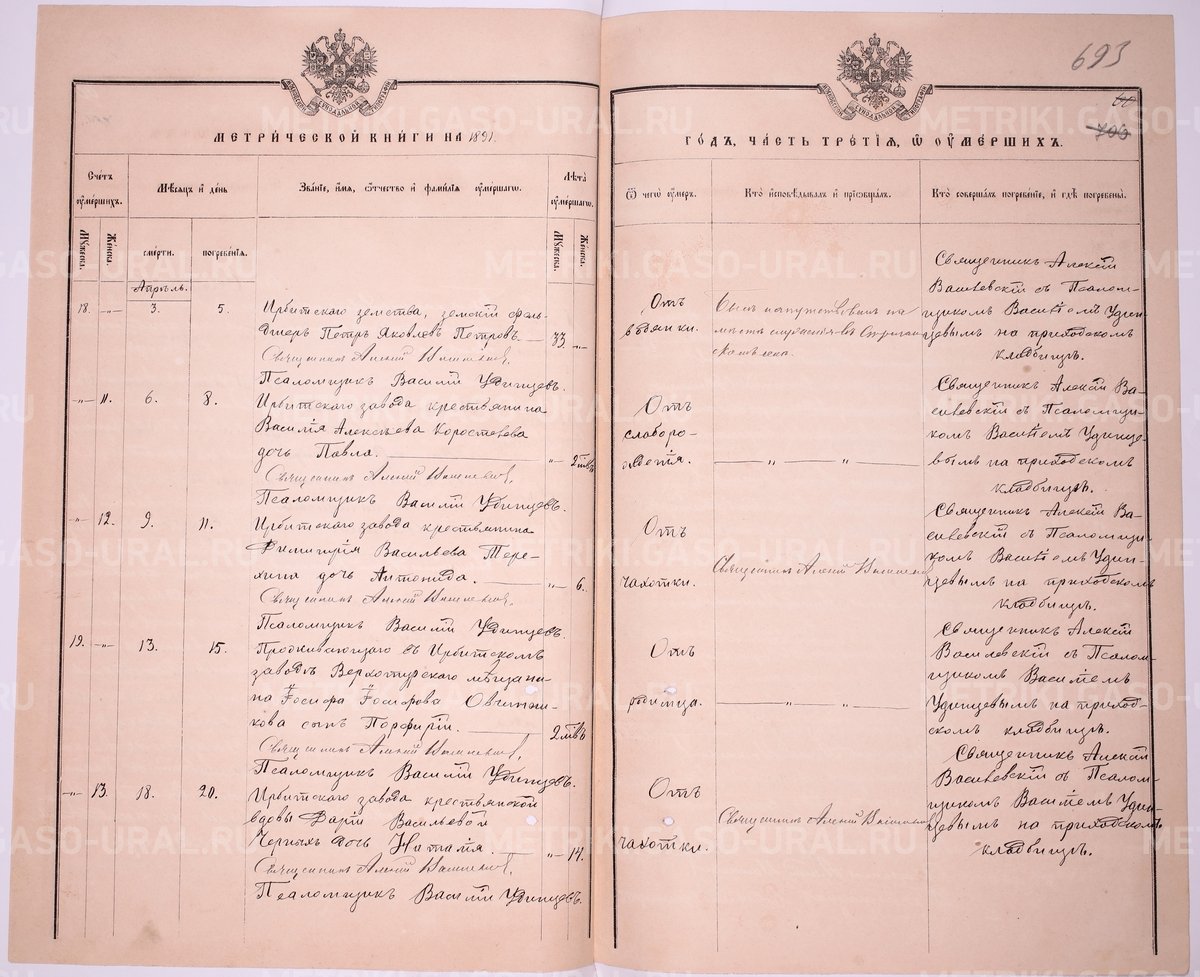 693
МЕТРИ́ЧЕСКОЙ КНИ́ГИ НА 1891
ГО́ДЪ, ЧА́СТЬ ТРЕ́ТІЯ, Ѿ ОУМЕ́РШИХЪ.
700
Сче́тъ оуме́ршихъ.
Мѣ́сяцъ и де́нь
Зва́ніе, и́мя, о́тчество и фами́лія оуме́ршагѡ.
Лѣ́та оуме́ршагѡ.
Ѿ чегѡ̀ оу́меръ.
Кто̀ исповѣ́дывалъ и прїобща́лъ.
Кто̀ соверша́лъ погребе́ніе, и гдѣ̀ погребены̀.
Му́жеска. Же́нска.
сме́рти. погребе́нія.
Му́жеска. Же́нска.
Апрѣль.
18. -„- 3. 5.
Ирбитскаго земства, земскій фель-
дшеръ Петръ Яковлевъ Петровъ. 33. -„-
Священникъ Алексій
Псаломщикъ Василій Удинцевъ.
Отъ
водянки.
Былъ напутствованъ на
мѣстѣ служенія въ
Священникъ Алексій
Васілевскій съ Псалом-
щикомъ Василіемъ Удин-
цевымъ на приходскомъ
кладбищѣ.
-„- 11. 6. 8.
Ирбитскаго завода крестьянина
Василія Алексѣева Коростелева
дочь Павла. -„- 2 мѣс.
Священникъ Алексій
Псаломщикъ Василій Удинцевъ.
Отъ
слаборо-
жденія.
„ „
Священникъ Алексій Ва-
силевскій съ Псаломщи-
комъ Василіемъ Удинце-
вымъ на приходскомъ
кладбищѣ.
-„- 12. 9. 11.
Ирбитскаго завода крестьянина
Филиппія Васильева Тере-
хина дочь Антонида. -„- 6.
Священникъ Алексій
Псаломщикъ Василій Удинцевъ.
Отъ
чахотки.
Священникъ Алексій
Священникъ Алексій Ва-
силевскій съ Псаломщи-
комъ Василіемъ Удин-
цевымъ на приходскомъ
кладбищѣ.
19. -„- 13. 15.
Проживающаго въ Ирбитскомъ
заводѣ Верхотурскаго мѣщани-
на Іосифа Іосифова Овчинни-
кова сынъ Порфирій. 2 мѣс.
Священникъ Алексій
Псаломщикъ Василій Удинцевъ.
Отъ
родимца.
„ „
Священникъ Алексій
Василевскій съ Псалом-
щикомъ Василіемъ
Удинцевымъ на приход-
скомъ кладбищѣ.
-„- 13. 18. 20.
Ирбитскаго завода крестьянской
вдовы Даріи Васильевой
Черныхъ дочь Наталія. -„- 14.
Священникъ Алексій
Псаломщикъ Василій Удинцевъ.
Отъ
чахотки.
Священникъ Алексій
Священникъ Алексій
Василевскій съ Псалом-
щикомъ Василіемъ Удин-
цевымъ на приходскомъ
кладбищѣ.
METRIKI.GASO-URAL.RU